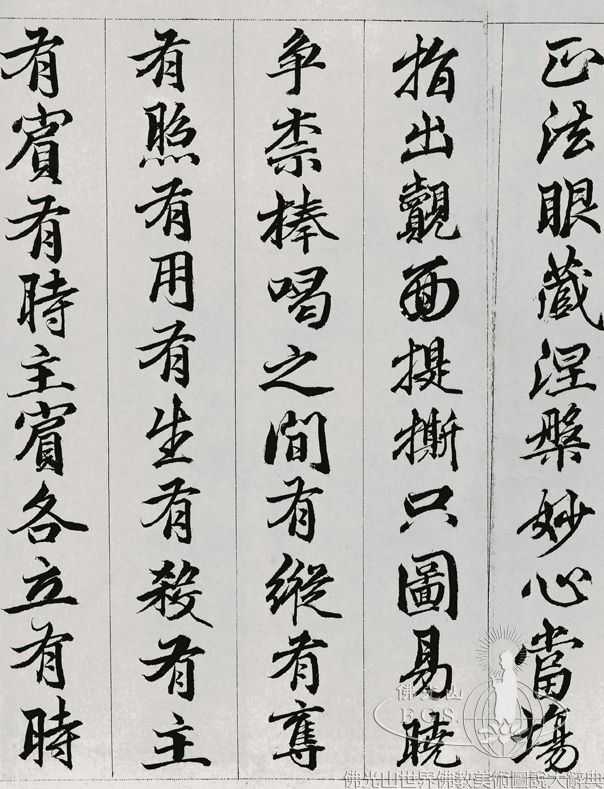 正法眼藏涅槃妙心當塲
指出覿面提撕只圖易曉
爭柰棒喝之間有縱有奪
有照有用有生有殺有主
有賓有時主賓各立有時
佛光山
F.G.S.
佛光山世界佛教美術圖說大辭典